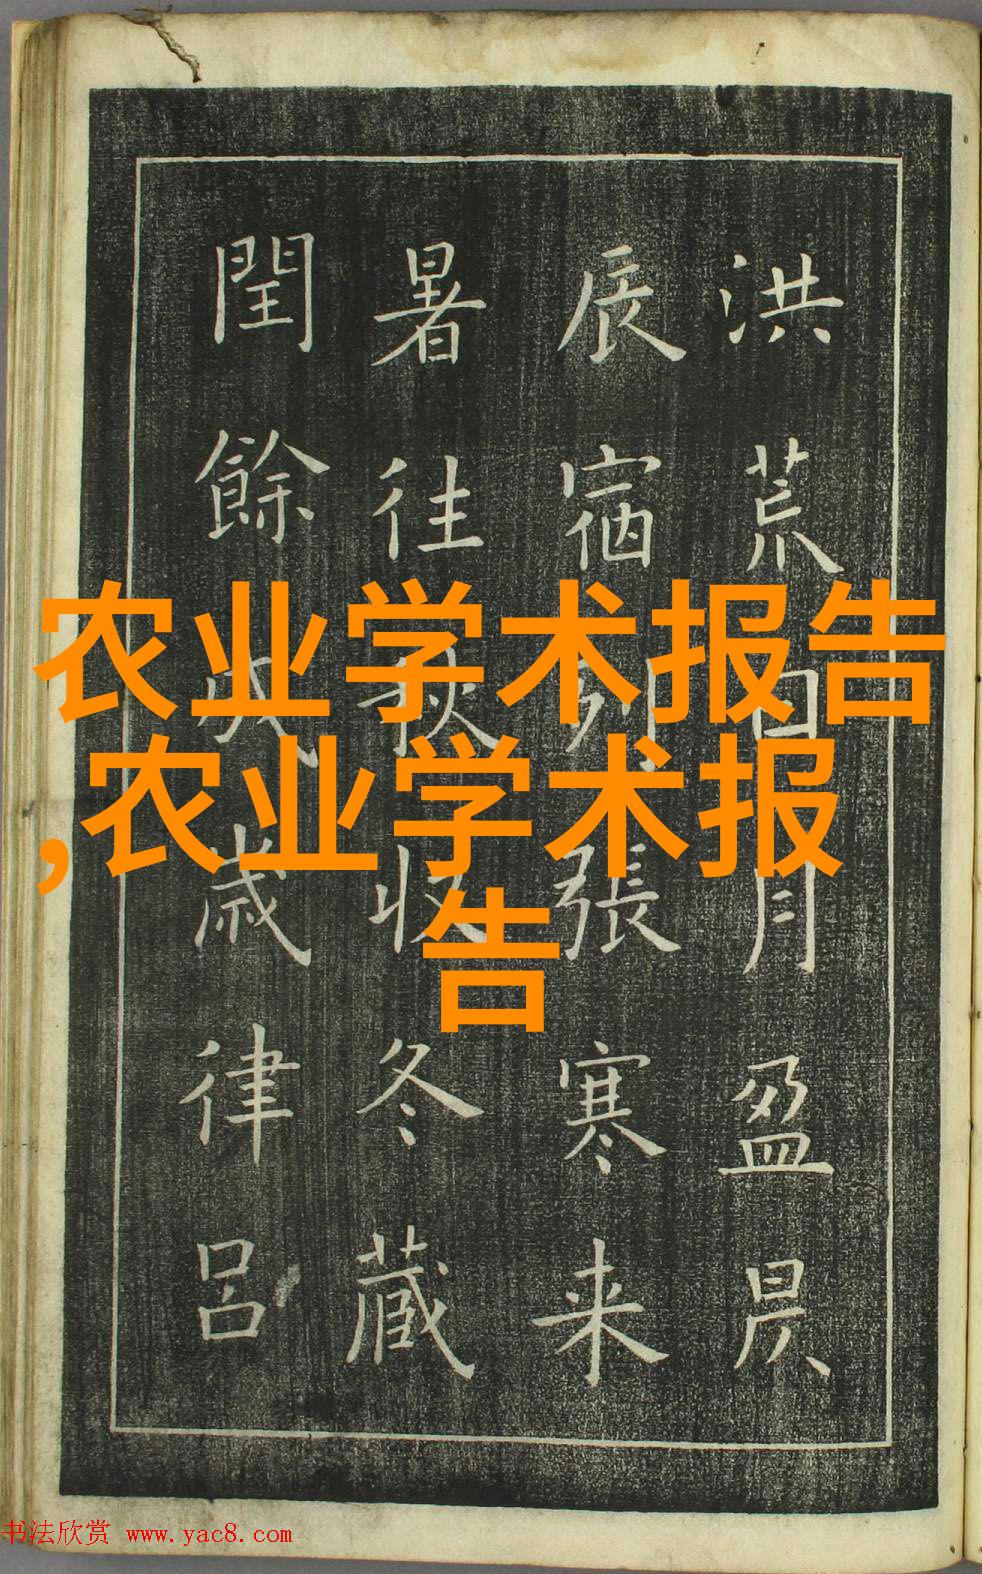 洪荒日月盈昃
辰宿列張寒来
暑往秋收冬藏
閏餘成歲律呂
农业学术报告
,农业学术报
告
书法欣赏 www.yac8.com